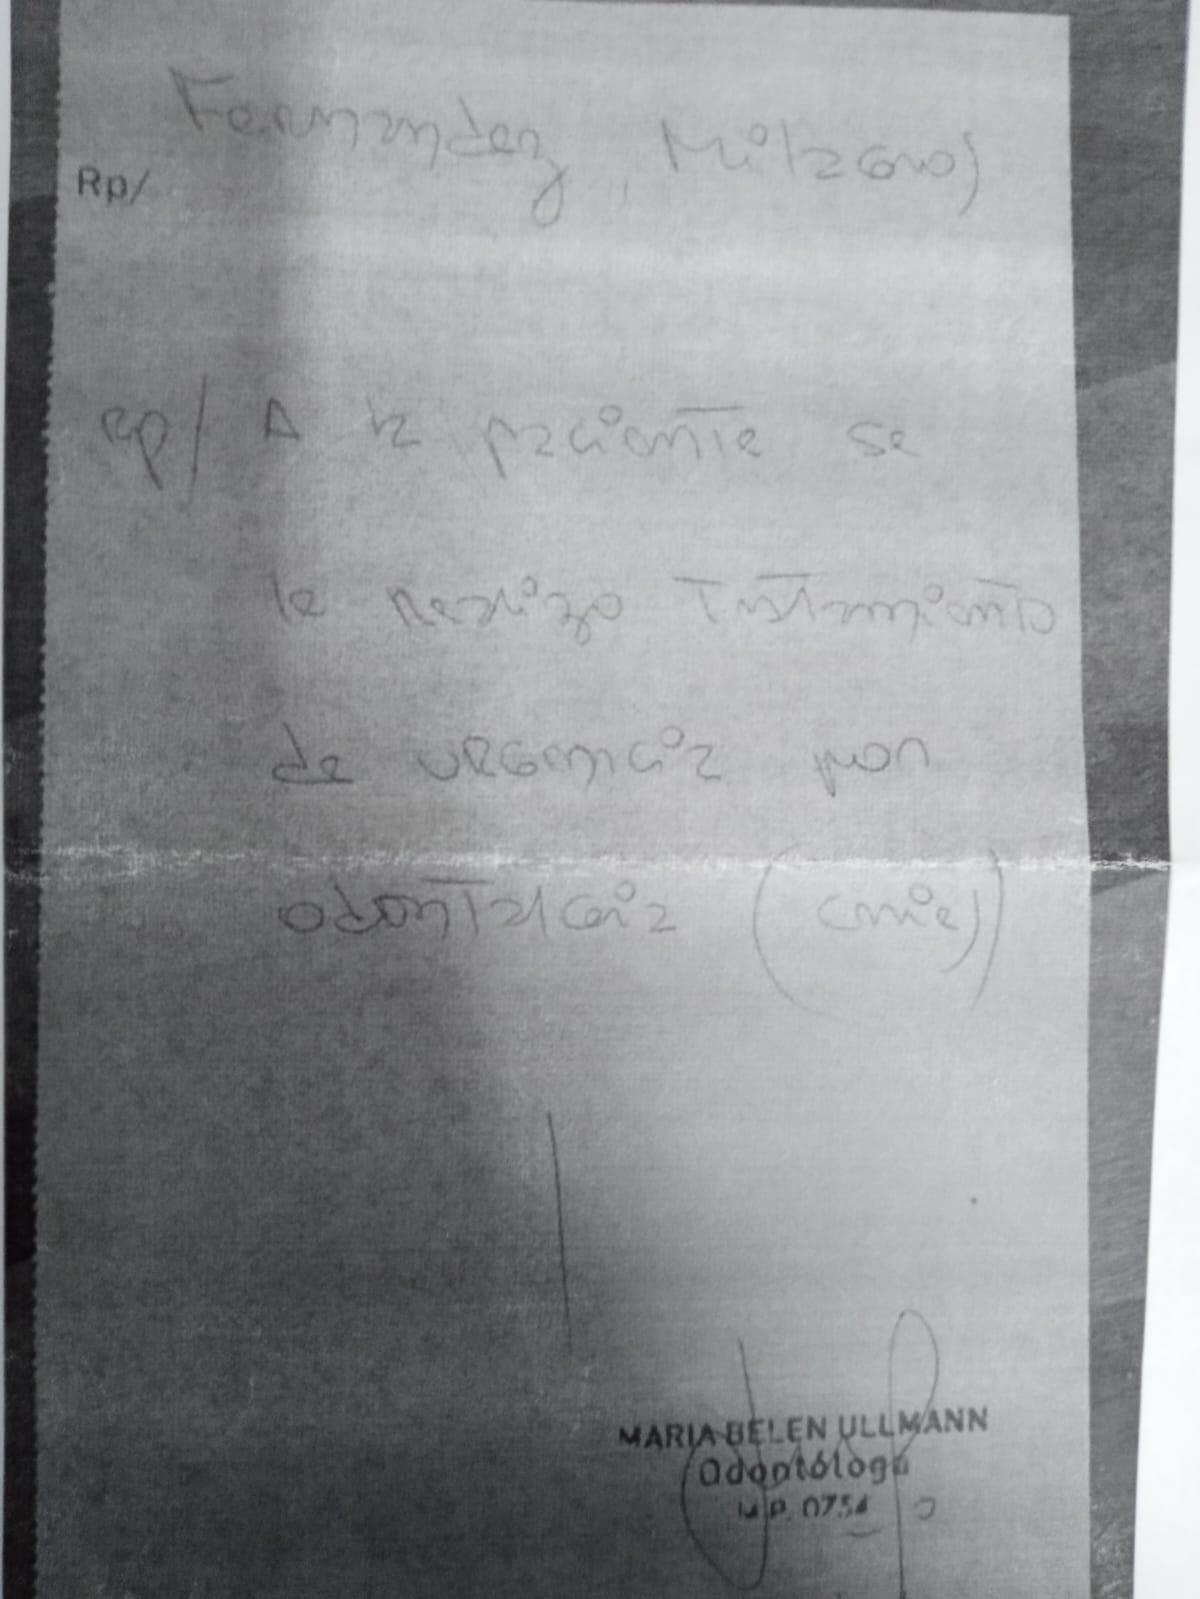 Fernandez, Milagros
Rp/
Rp/ A la paciente se
le realizo tratamiento
de urgencia por
odontalgia (caries)
MARIA BELEN ULLMANN
Odontóloga
M.P. 0754